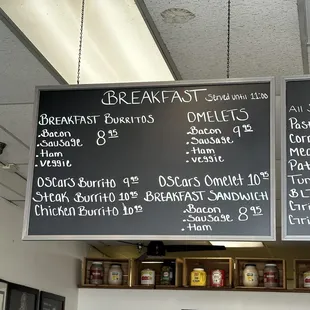 BREAKFAST Served until 11:00
BREAKFAST BURRITOS
• Bacon
• Sausage
• Ham
• Veggie
8.95
OMELETS
• Bacon
• Sausage
• Ham
• Veggie
9.95
OSCARS BURRITO 9.95
STEAK BURRITO 10.95
CHICKEN BURRITO 10.95
OSCARS OMELET 10.95
BREAKFAST SANDWICH
• Bacon
• Sausage
• Ham
8.95
ALL S